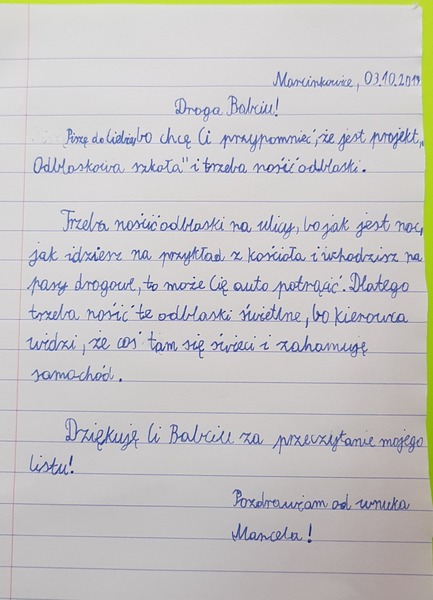 Marcinkowice, 03.10.2019
Droga Babciu!
Piszę do Ciebie, bo chcę Ci przypomnieć, że jest projekt „
Odblaskowa szkoła" i trzeba nosić odblaski.
Trzeba nosić odblaski na ulicy, bo jak jest noc,
jak idziesz na przykład z kościoła i wchodzisz na
pasy drogowe, to może Cię auto potrącić. Dlatego
trzeba nosić te odblaski świetlne, bo kierowca
widzi, że coś tam się świeci i zahamuję
samochód.
Dziękuję Ci Babciu za przeczytanie mojego
listu!
Pozdrawiam od wnuka
Marcela!